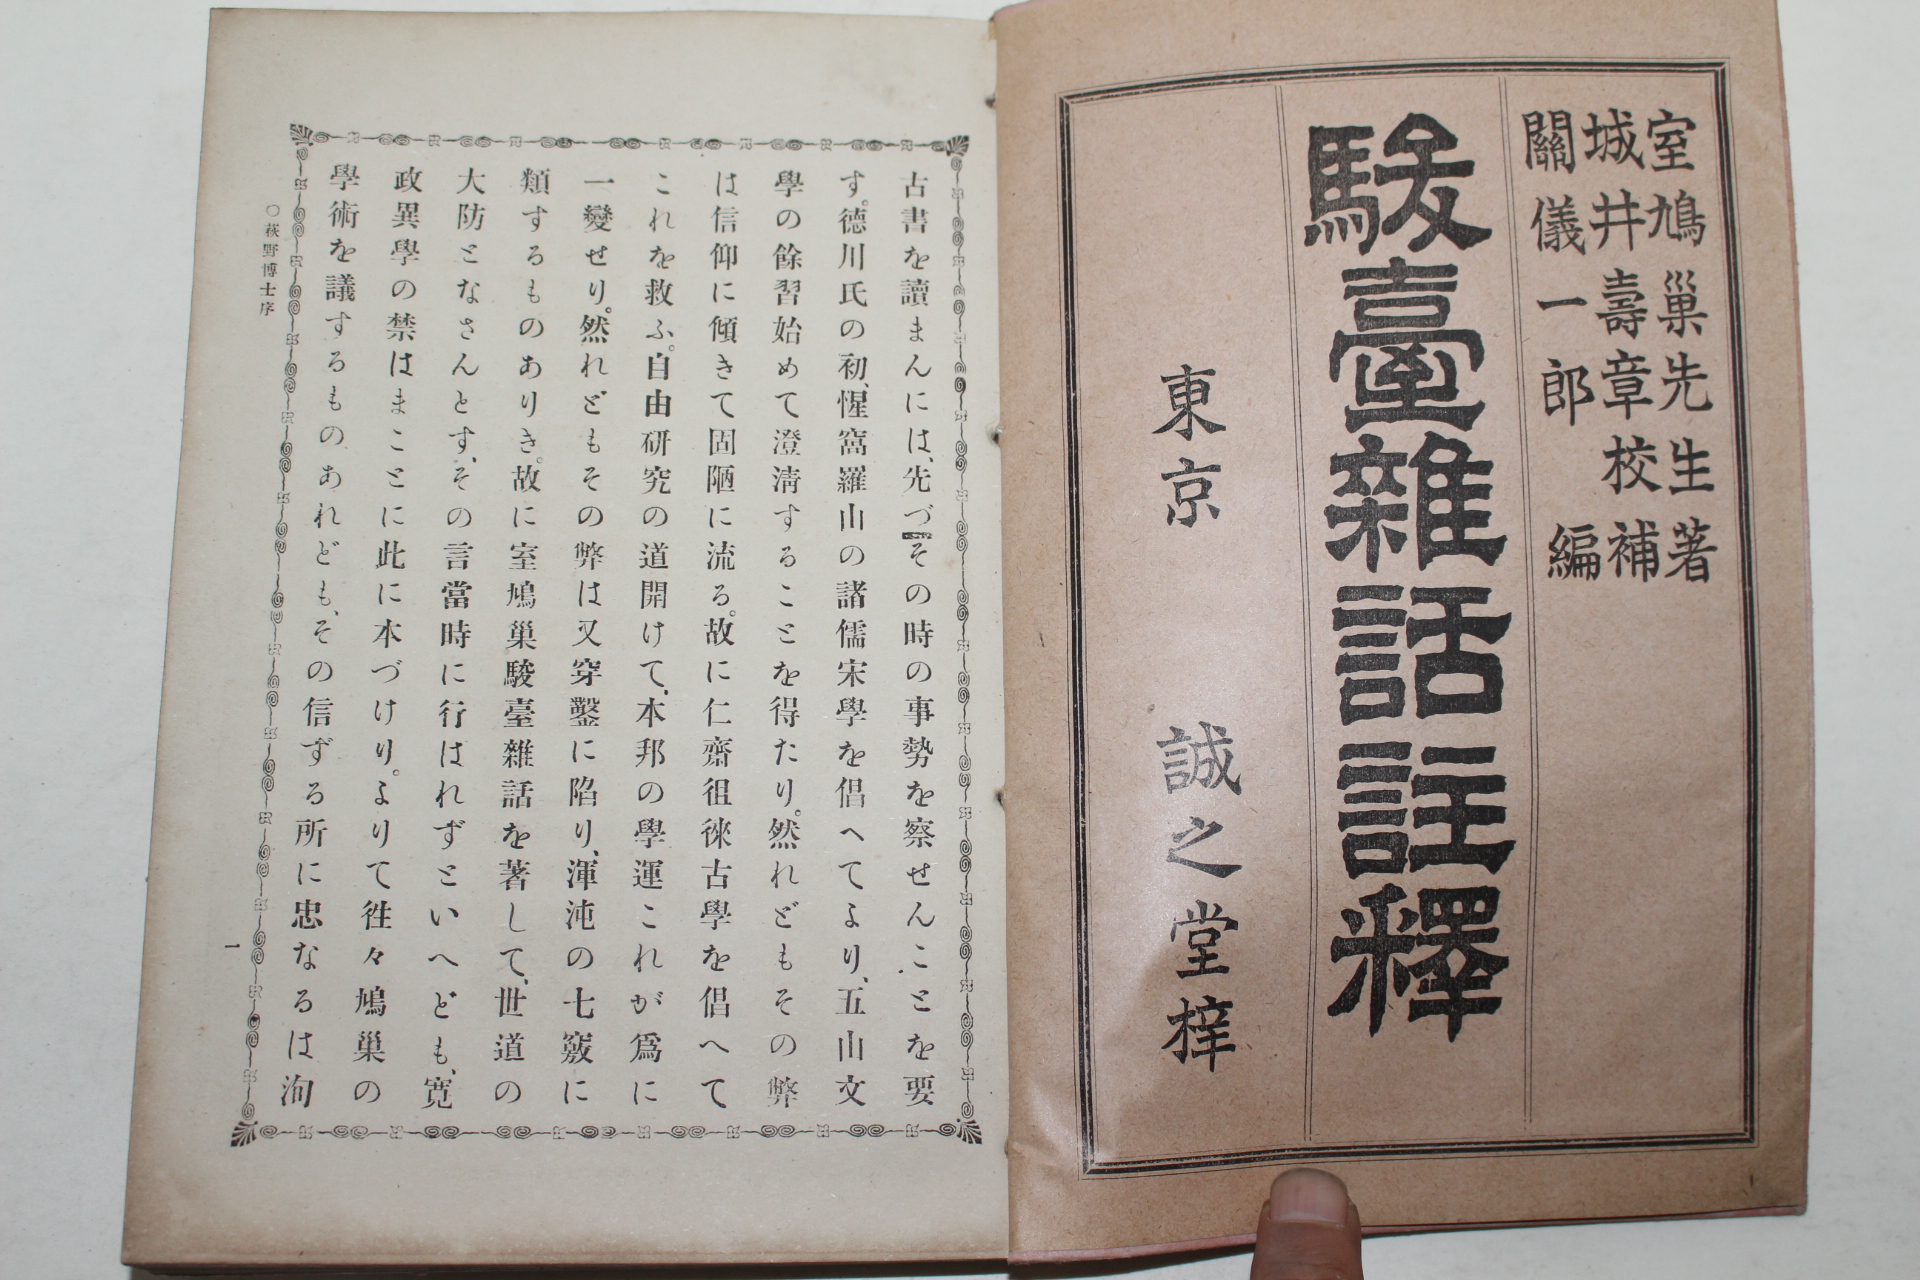 室鳩巢先生著
城井壽章校補
關儀一郎編
駿臺雜話註釋
東京 誠之堂梓
古書を讀まんには、先づその時の事勢を察せんことを要
す。德川氏の初、惺窩羅山の諸儒宋學を倡へてより、五山文
學の餘習始めて澄淸することを得たり。然れどもその弊
は信仰に傾きて固陋に流る。故に仁齋徂徠古學を倡へて
これを救ふ。自由硏究の道開けて、本邦の學運これが爲に
一變せり。然れどもその弊は又穿鑿に陷り、渾沌の七竅に
類するものありき。故に室鳩巢駿臺雜話を著して、世道の
大防となさんとす、その言當時に行はれずといへども、寬
政異學の禁はまことに此に本づけり。よりて徃々鳩巢の
學術を議するものあれども、その信ずる所に忠なるは洵
○萩野博士序
一